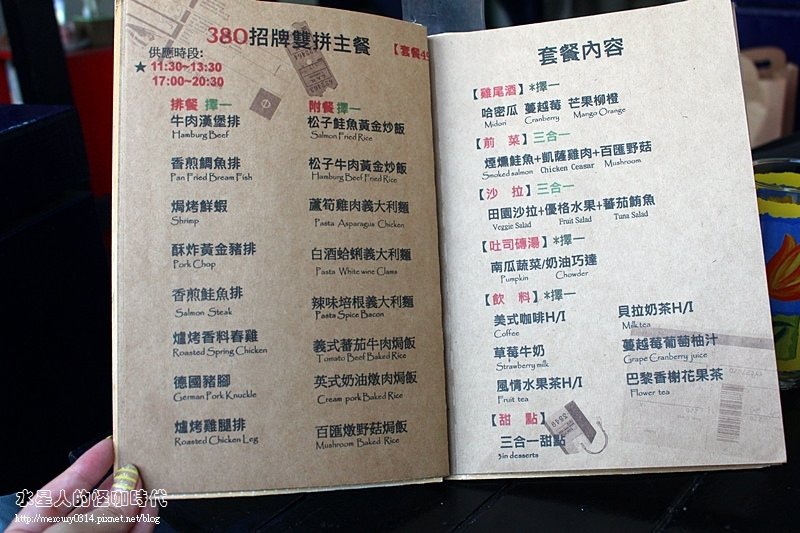 380招牌雙拼主餐
【套餐49
供應時段:
★ 11:30~13:30
17:00~20:30
排餐 擇一
牛肉漢堡排
Hamburg Beef
香煎鯛魚排
Pan Fried Bream Fish
焗烤鮮蝦
Shrimp
酥炸黃金豬排
Pork Chop
香煎鮭魚排
Salmon Steak
爐烤香料春雞
Roasted Spring Chicken
德國豬腳
German Pork Knuckle
爐烤雞腿排
Roasted Chicken Leg
附餐 擇一
松子鮭魚黃金炒飯
Salmon Fried Rice
松子牛肉黃金炒飯
Hamburg Beef Fried Rice
蘆筍雞肉義大利麵
Pasta Asparagus Chicken
白酒蛤蜊義大利麵
Pasta White wine Clams
辣味培根義大利麵
Pasta Spice Bacon
義式蕃茄牛肉焗飯
Tomato Beef Baked Rice
英式奶油燉肉焗飯
Cream pork Baked Rice
百匯燉野菇焗飯
Mushroom Baked Rice
套餐內容
【雞尾酒】*擇一
哈密瓜 蔓越莓 芒果柳橙
Midori Cranberry Mango Orange
【前 菜】三合一
煙燻鮭魚+凱薩雞肉+百匯野菇
Smoked salmon Chicken Ceasar Mushroom
【沙 拉】三合一
田園沙拉+優格水果+蕃茄鮪魚
Veggie Salad Fruit Salad Tuna Salad
【吐司磚湯】*擇一
南瓜蔬菜/奶油巧達
Pumpkin Chowder
【飲 料】*擇一
美式咖啡H/I 貝拉奶茶H/I
Coffee Milk tea
草莓牛奶 蔓越莓葡萄柚汁
Strawberry milk Grape Cranberry juice
風情水果茶H/I 巴黎香榭花果茶
Fruit tea Flower tea
【甜 點】
三合一甜點
3in desserts
水星人的怪咖時代
http://mercury0314.pixnet.net/blog